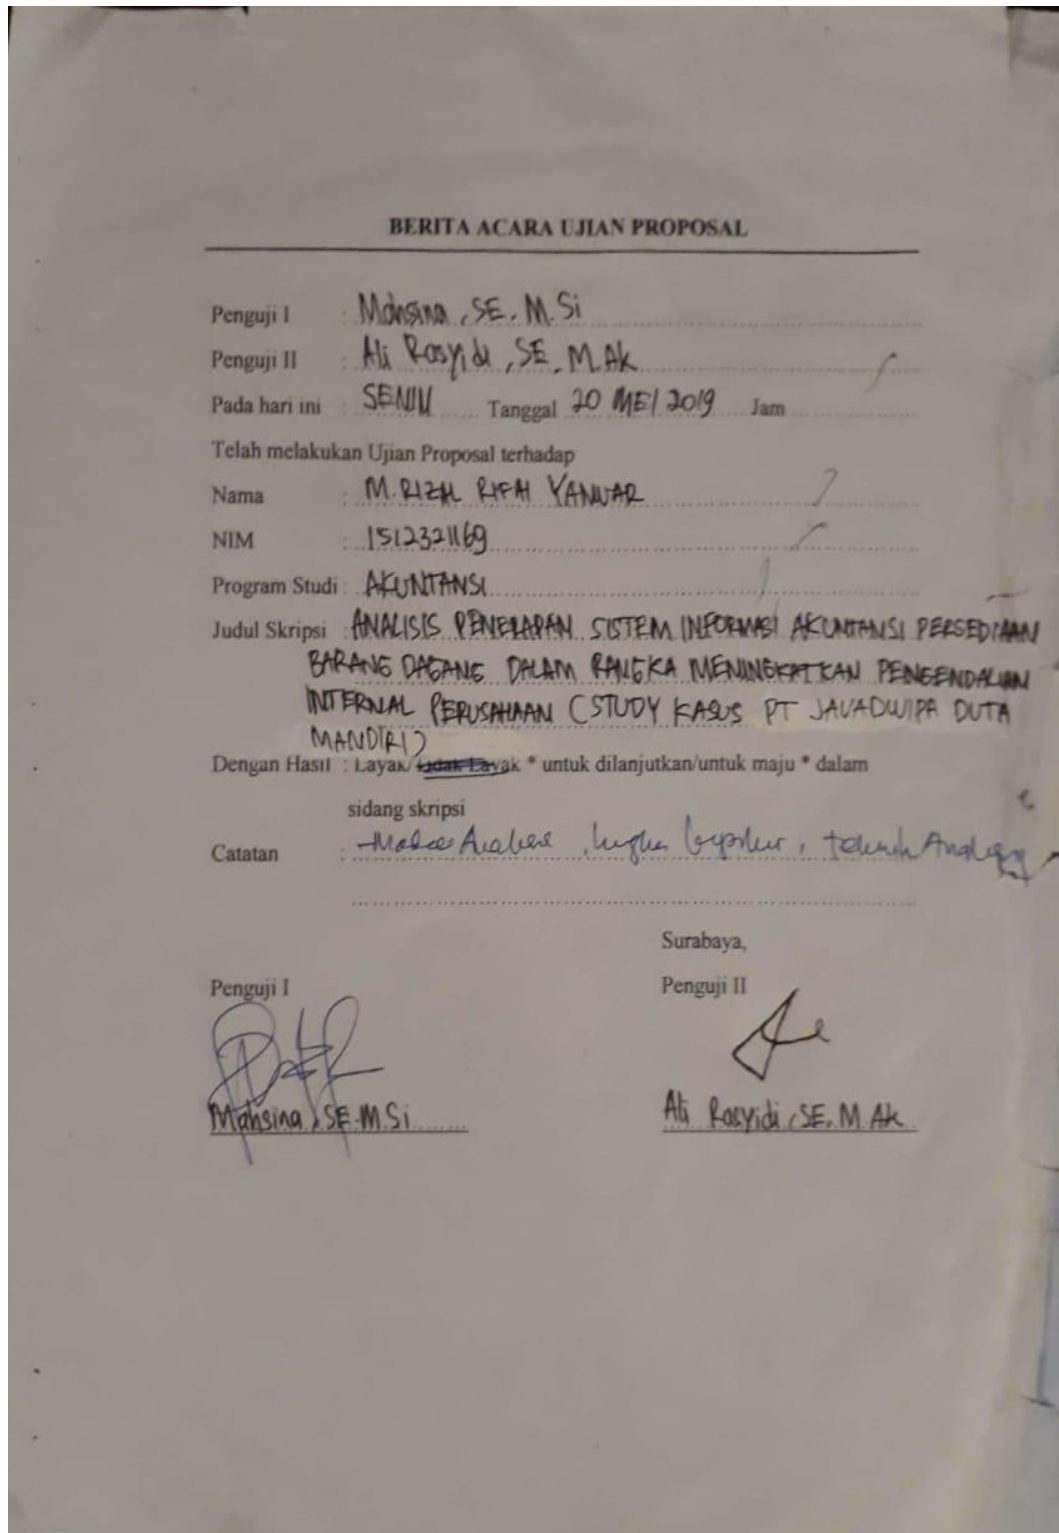 BERITA ACARA UJIAN PROPOSAL
Penguji I : Mahsina, SE. M.Si
Penguji II : Ali Rosyidi, SE, M.Ak
Pada hari ini : SENIN Tanggal 20 MEI 2019 Jam
Telah melakukan Ujian Proposal terhadap
Nama : M. RIZAL RIFAI YANUAR
NIM : 1512321169
Program Studi : AKUNTANSI
Judul Skripsi : ANALISIS PENERAPAN SISTEM INFORMASI AKUNTANSI PERSEDIAAN
BARANG DAGANG DALAM RANGKA MENINGKATKAN PENGENDALIAN
INTERNAL PERUSAHAAN (STUDY KASUS PT JAVADWIPA DUTA
MANDIRI)
Dengan Hasil : Layak/tidak Layak * untuk dilanjutkan/untuk maju * dalam
sidang skripsi
Catatan :
Surabaya,
Penguji I Penguji II
Mahsina, SE. M.Si Ali Rosyidi, SE, M.Ak